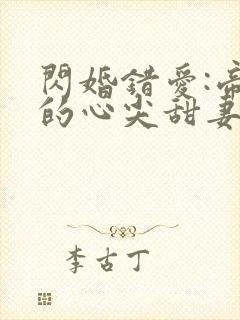 閃婚錯愛:帝
的心尖甜妻
李古丁